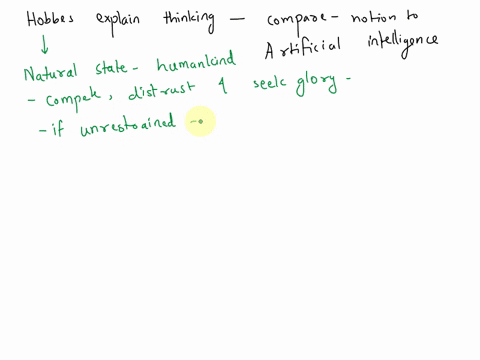 Hobbes explain thinking — compare - notion to
Artificial intelligence
↓
Natural state - humankind
- compete, distrust & seek glory -
- if unrestrained →